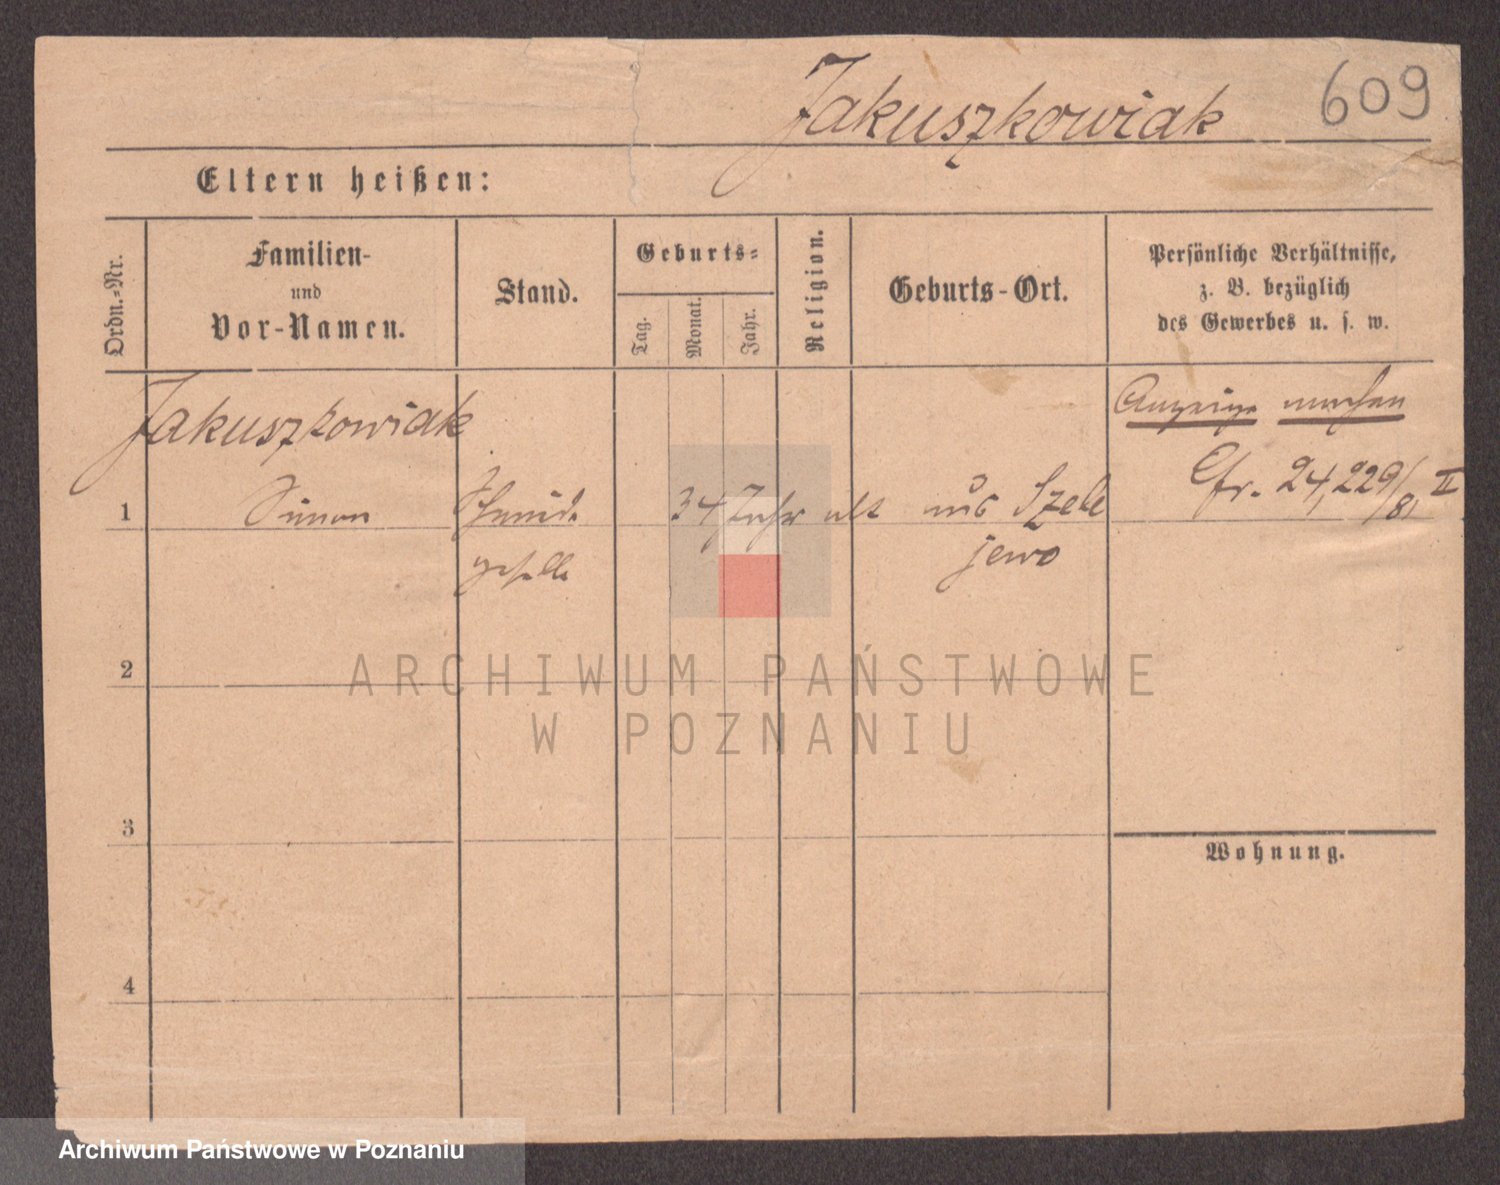 Jakuszkowiak 609
Eltern heißen:
Ordn.-Nr.
Familien-
und
Vor-Namen.
Stand.
Geburts-
Tag.
Monat.
Jahr.
Religion.
Geburts-Ort.
Persönliche Verhältnisse,
z. B. bezüglich
des Gewerbes u. s. w.
Jakuszkowiak
Anzeige machen
Cfr. 24,229/81 II
1 Simon Schmied- 34 Jahr alt aus Szele
geselle jewo
2
3
Wohnung.
4
ARCHIWUM PAŃSTWOWE
W POZNANIU
Archiwum Państwowe w Poznaniu